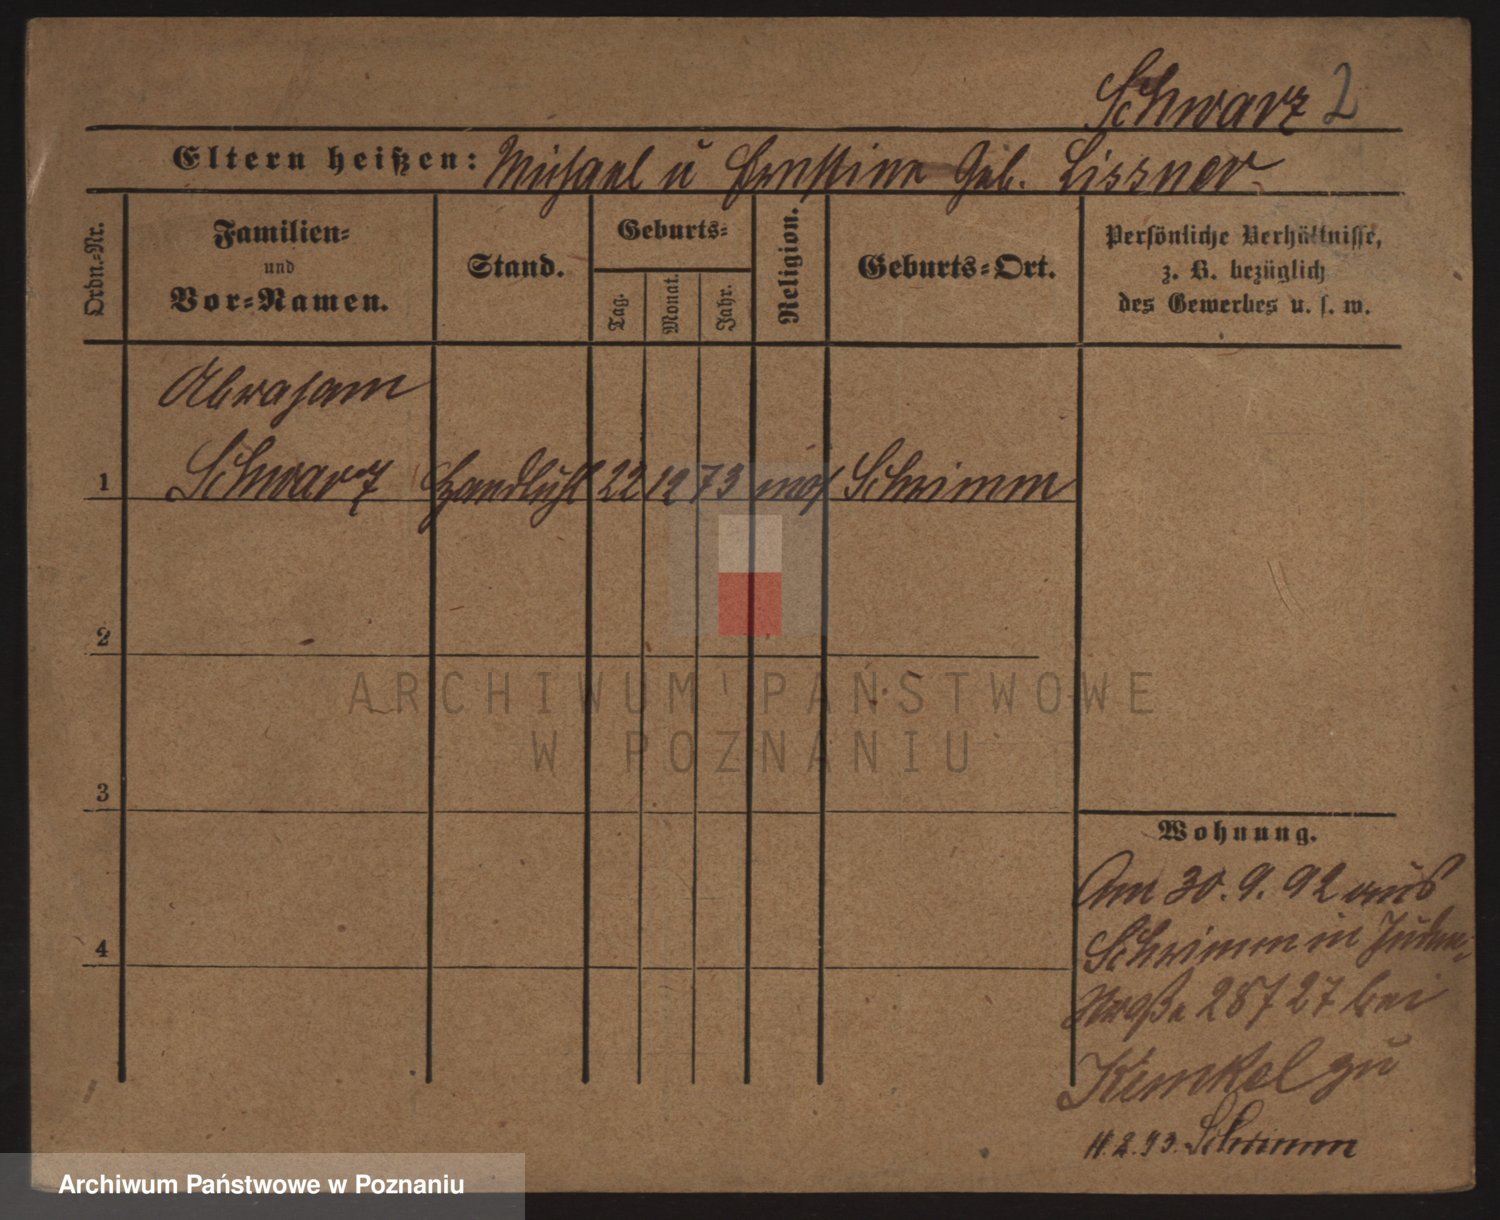 Schwarz 2
Eltern heißen: Michael u Ernstine Geb. Lissner
Ordn.-Nr.
Familien-
und
Vor-Namen.
Stand.
Geburts-
Tag.
Monat.
Jahr.
Religion.
Geburts-Ort.
Persönliche Verhältnisse,
z. B. bezüglich
des Gewerbes u. s. w.
Abraham
1 Schwarz Handlgh 22 12 73 mos Schrimm
2
3
4
Wohnung.
Am 30.9.92 aus
Schrimm in Juden-
straße 28/27 bei
Kunkel zu
11.2.93. Schrimm
ARCHIWUM PAŃSTWOWE
W POZNANIU
Archiwum Państwowe w Poznaniu